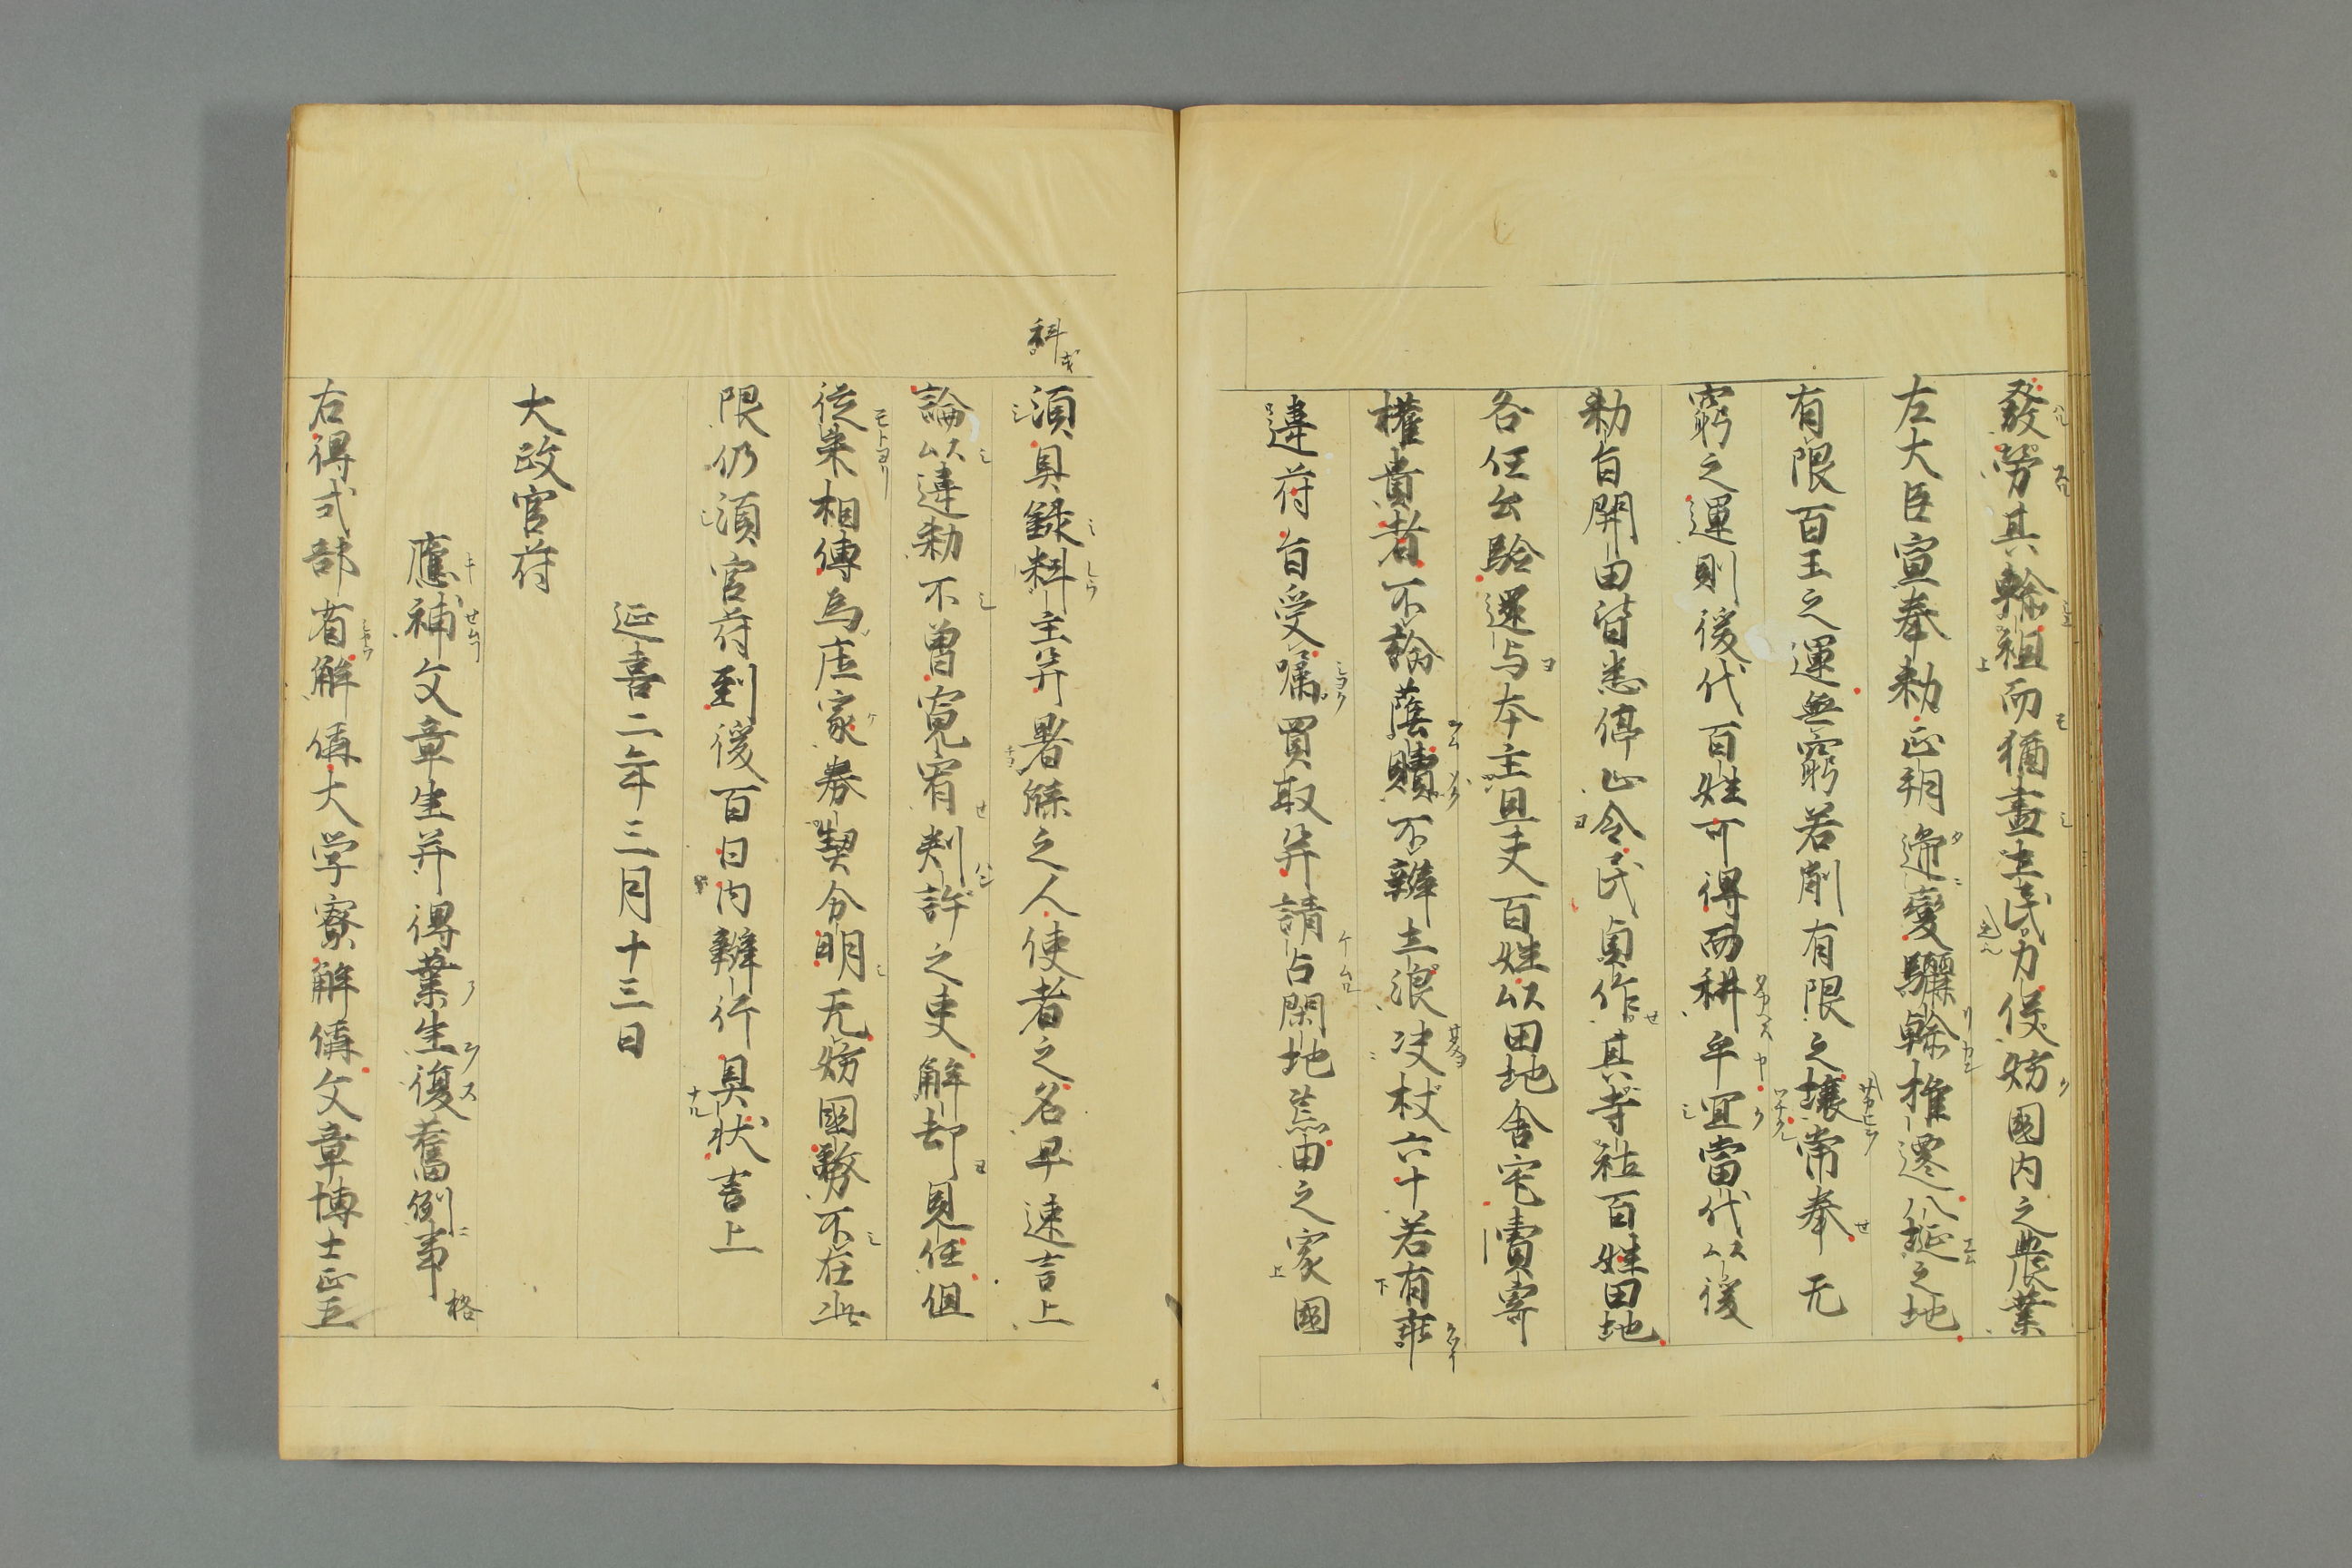 發勞其輸租而猶盡土民力役妨國内之農業
左大臣宣奉勅正朔遞變驪翰推遷八埏之地
有限百王之運無窮若削有限之壤常奉无
窮之運則後代百姓可得而耕乎宜當代以後
勅旨開田皆悉停止令民負作其寺社百姓田地
各任公驗還与本主且夫百姓以田地舎宅賣寄
權貴者不論蔭贖不辨土浪决杖六十若有詐
違符旨受囑買取并請占閑地荒田之家國
科
須具録料主并署牒之人使者之名早速言上
論以違勅不曽寛宥判許之吏解却見任但
従来相傳為庄家券契分明无妨國務不在此
限仍須官符到後百日内辨行具状言上
延喜二年三月十三日
大政官符
應補文章生并得業生復舊例事 格
右得式部省解偁大学寮解偁文章博士正五